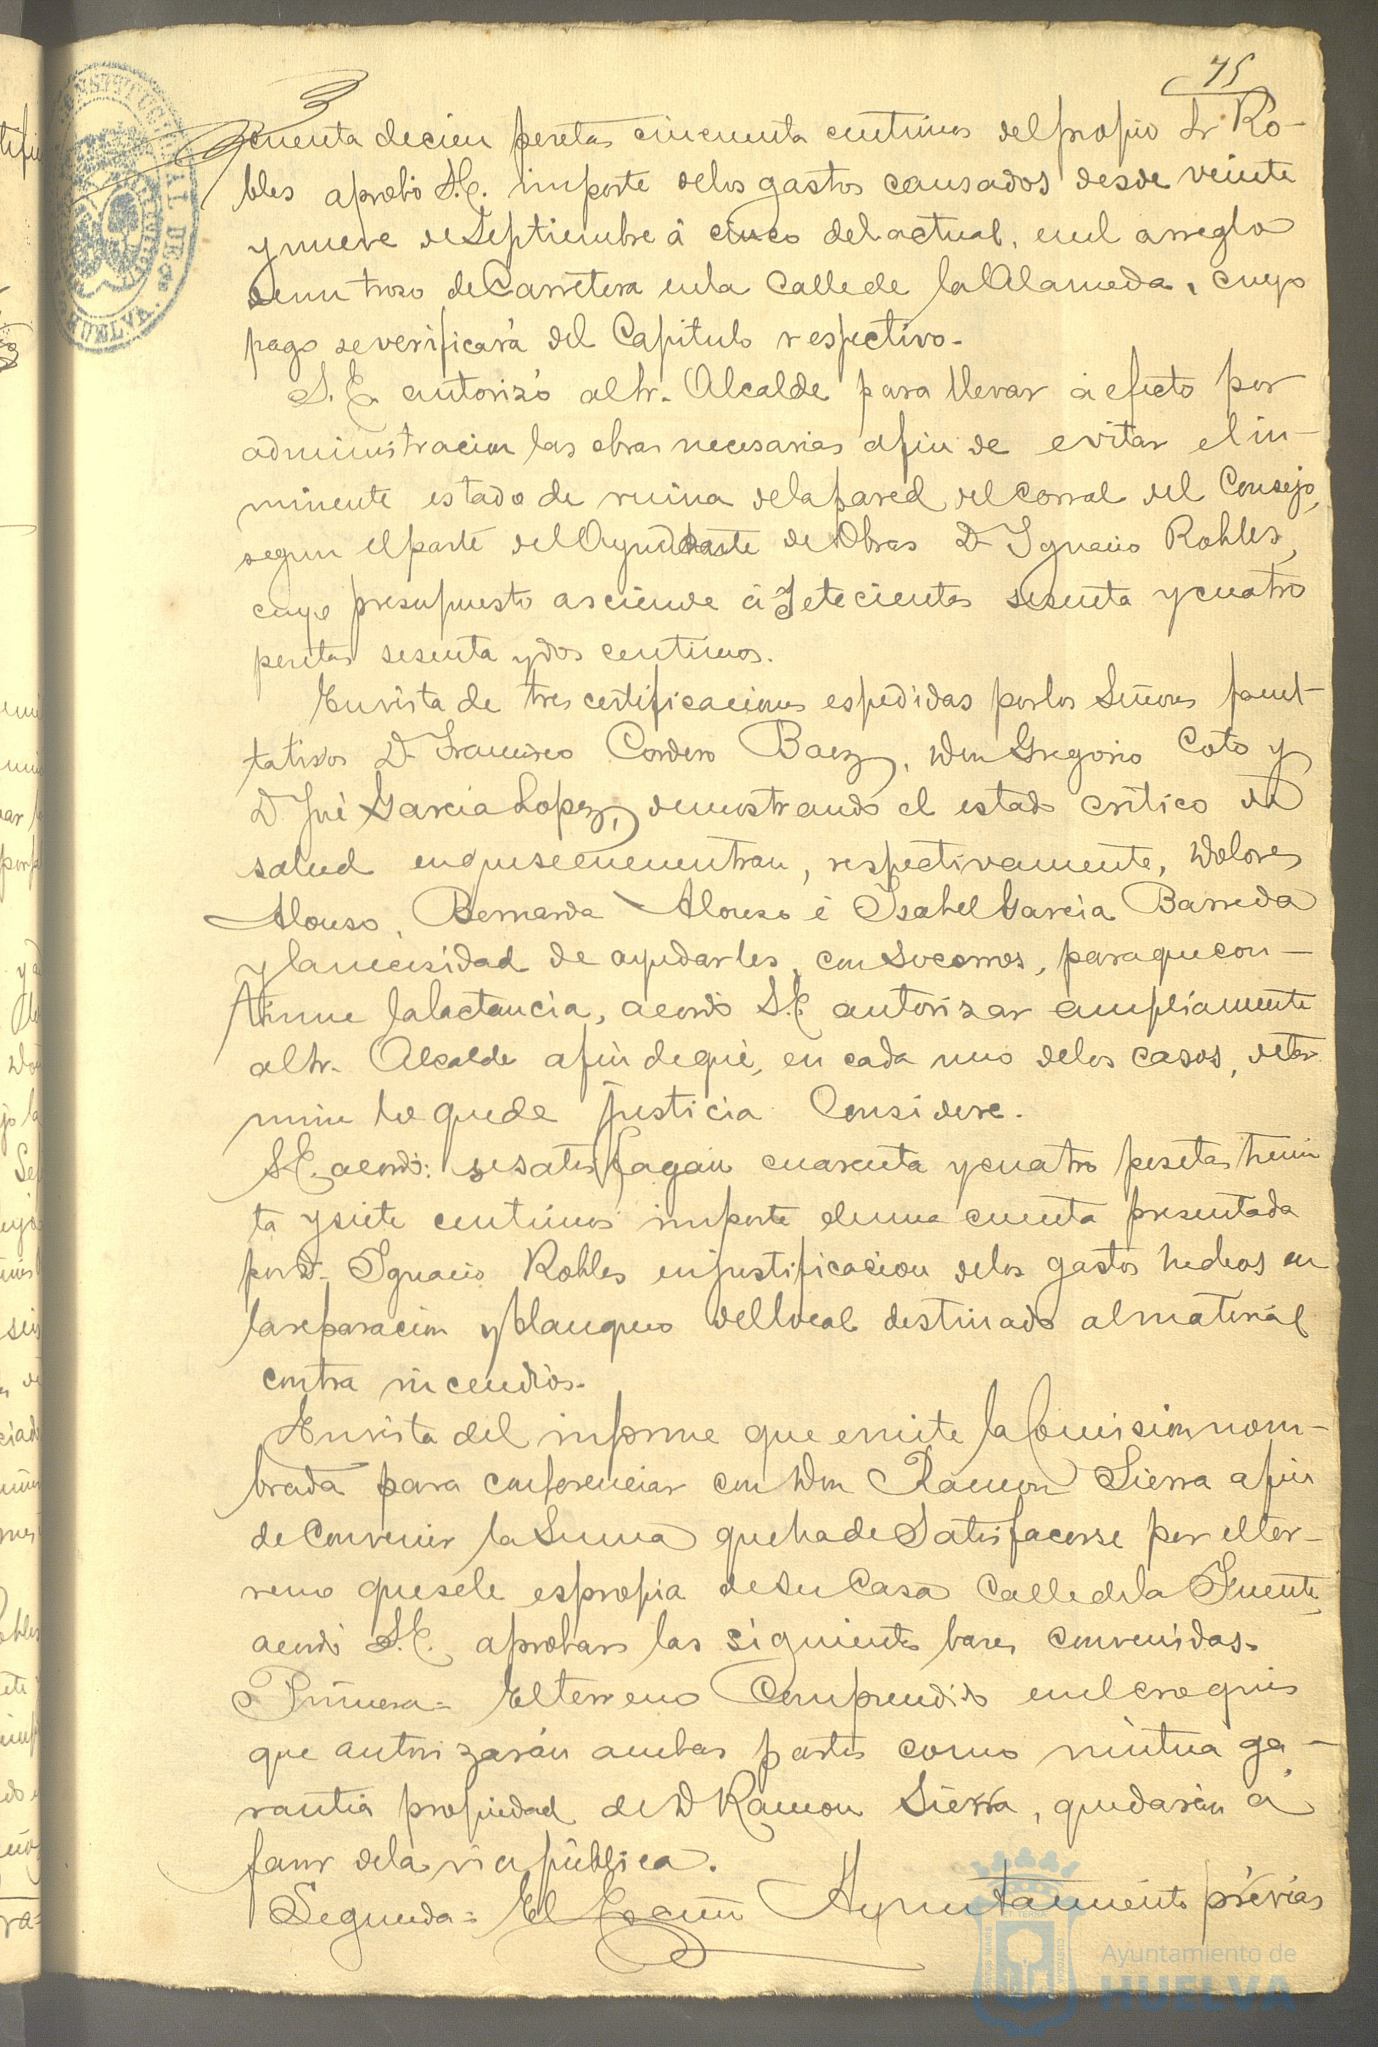 75
cuenta de cien pesetas cincuenta centimos del propio Sr Ro-
bles aprobó S.E. importe delos gastos causados desde veinte
y nueve de Septiembre á cinco del actual, enel arreglo
deun trozo de Carretera enla Calle de la Alameda, cuyo
pago se verificará del Capitulo respectivo.
S.E. autorizó al Sr. Alcalde para llevar á efecto por
administracion las obras necesarias afin de evitar el in-
minente estado de ruina dela pared del Corral del Consejo,
segun el parte del Ayudante de Obras D. Ygnacio Robles,
cuyo presupuesto asciende á Setecientas sesenta y cuatro
pesetas sesenta y dos centimos.
En vista de tres certificaciones espedidas por los Señores facul-
tativos D. Francisco Cordero Baez, Don Gregorio Coto y
D José Garcia Lopez, demostrando el estado critico de
salud en que se encuentran, respectivamente, Dolores
Alonso, Bernarda Alonso é Isabel Garcia Barreda
y la necesidad de ayudarles, con socorros, para que con-
tinue la lactancia, acordó S.E. autorizar ampliamente
al Sr. Alcalde afin de que, en cada uno delos casos, deter
mine lo que de justicia Considere.
S.E. acordó: se satisfagan cuarenta y cuatro pesetas trein
ta y siete centimos importe deuna cuenta presentada
por D. Ygnacio Robles en justificacion delos gastos hechos en
la reparacion y blanqueo del local destinado al material
contra incendios.
En vista del informe que emite la Comision nom-
brada para conferenciar con Don Ramon Sierra afin
de Convenir la Suma que ha de Satisfacerse por el ter-
reno que se le espropia de su Casa Calle de la Fuente,
acordó S.E. aprobar las siguientes bases convenidas.
Primera= El terreno Comprendido enel croquis
que autorizarán ambas partes como mútua ga-
rantia propiedad de D Ramon Sierra, quedarán á
favor dela via pública.
Segunda= El Escmo Ayuntamiento prévias
Ayuntamiento de
HUELVA